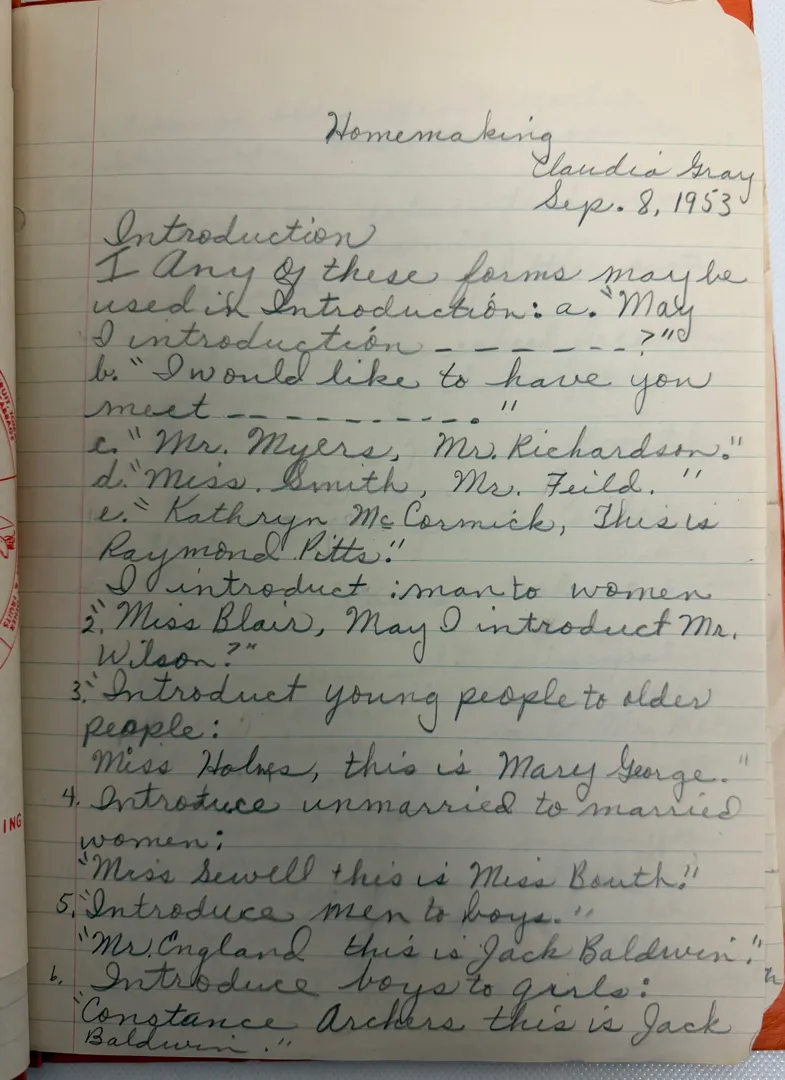 Homemaking
Claudia Gray
Sep. 8, 1953
Introduction
I Any of these forms may be
used in Introduction: a. "May
I introduction - - - - - - -?"
b. "I would like to have you
meet - - - - - - - - - - ."
c. "Mr. Myers, Mr. Richardson."
d. "Miss. Smith, Mr. Feild."
e. "Kathryn McCormick, This is
Raymond Pitts."
I introduct : man to women
2. "Miss Blair, May I introduct Mr.
Wilson?"
3. "Introduct young people to older
people:
Miss Holmes, this is Mary George."
4. Introduce unmarried to married
women:
"Miss Sewell this is Miss Bouth."
5. "Introduce men to boys."
"Mr. England this is Jack Baldwin."
6. Introduce boys to girls:
"Constance Archers this is Jack
Baldwin."
ING